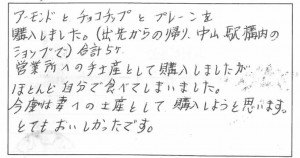 アーモンドとチョコチップとプレーンを
購入しました。(出先からの帰り、中山駅構内の
ショップで)合計5ヶ
営業所への手土産として購入しましたが
ほとんど自分で食べてしまいました。
今度は妻への土産として購入しようと思います。
とてもおいしかったです。